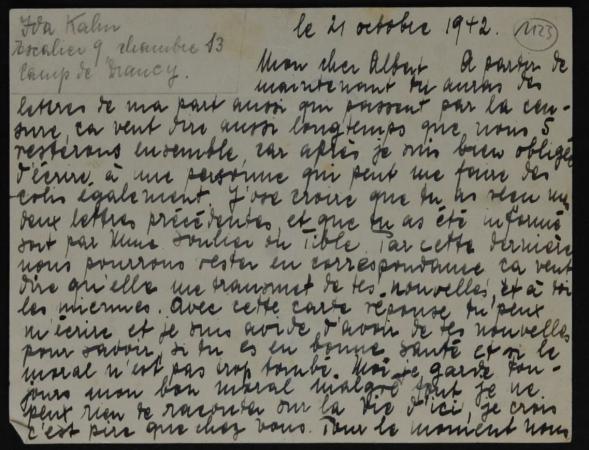 Ida Kahn
escalier 9 chambre 13
Camp de Drancy.
le 21 octobre 1942.
1123
Mon cher Albert A partir de
maintenant tu auras des
lettres de ma part aussi qui passent par la cen-
sure, ça veut dire aussi longtemps que nous 5
resterons ensemble, car après je suis bien obligée
d'écrire à une personne qui peut me faire des
colis également. J'ose croire que tu as reçu mes
deux lettres précédentes, et que tu as été informé
soit par Mme Soulier ou Tible. Par cette dernière
nous pourrons rester en correspondance ça veut
dire qu'elle me transmet de tes nouvelles, et à toi
les miennes. Avec cette carte réponse tu peux
m'écrire et je suis avide d'avoir de tes nouvelles
pour savoir, si tu es en bonne santé et si le
moral n'est pas trop tombé. Moi je garde tou-
jours mon bon moral malgré tout je ne
peux rien te raconter sur la vie d'ici, je crois
c'est pire que chez vous. Pour le moment nous